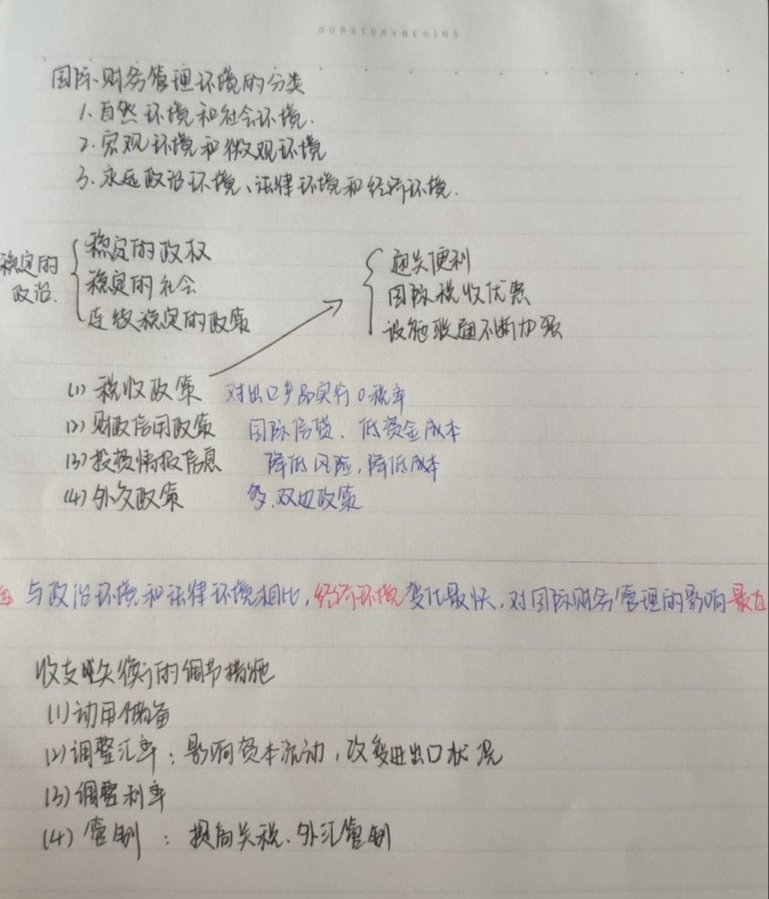 OURSTORYBEGINS
国际财务管理环境的分类
1.自然环境和社会环境.
2.宏观环境和微观环境
3.政治环境、法律环境和经济环境.
稳定的政治.
稳定的政权
稳定的社会
连续稳定的政策
通关便利
国际税收优惠
设施联通不断加强
(1) 税收政策 对出口产品实行0税率
(2) 财政信用政策 国际信贷、低资金成本
(3) 投资情报信息 降低风险,降低成本
(4) 外交政策 多.双边政策
与政治环境和法律环境相比,经济环境变化最快,对国际财务管理的影响最
收支失衡的调节措施
(1) 动用储备
(2) 调整汇率:影响资本流动,改变进出口状况
(3) 调整利率
(4) 管制:提高关税.外汇管制